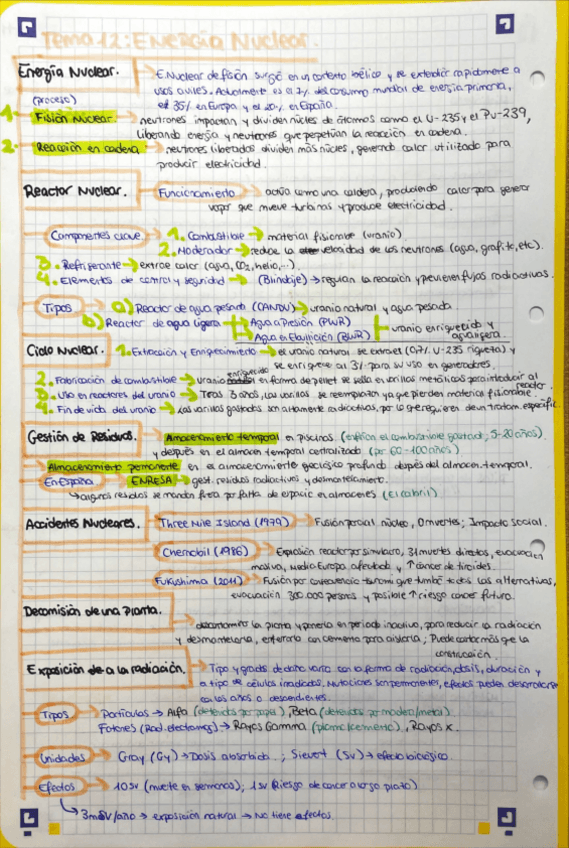 Tema 12: Energía Nuclear.
Energía Nuclear. → E.Nuclear de fisión surgió en un contexto bélico y se extendió rapidamente a
usos civiles. Actualmente es el 7% del consumo mundial de energía primaria,
el 35% en Europa y el 20% en España.
(proceso)
1. Fisión Nuclear. → neutrones impactan y dividen núcleos de átomos como el U-235 y el Pu-239,
liberando energía y neutrones que perpetúan la reacción en cadena.
2. Reacción en cadena → neutrones liberados dividen más núcleos, generando calor utilizado para
producir electricidad.
Reactor Nuclear. Funcionamiento → actúa como una caldera, produciendo calor para generar
vapor que mueve turbinas y produce electricidad.
Componentes clave 1. Combustible → material fisionable (uranio)
2. Moderador → reduce la velocidad de los neutrones (agua, grafito, etc).
3. Refrigerante → extrae calor (agua, CO2, helio,...)
4. Elementos de control y seguridad → (Blindaje) → regulan la reacción y previenen flujos radiactivos.
Tipos a) Reactor de agua pesada (CANDU) → uranio natural y agua pesada
b) Reactor de agua ligera → Agua a Presión (PWR)
→ Agua en Ebullición (BWR) uranio enriquecido y
agua ligera.
Ciclo Nuclear. 1. Extracción y Enriquecimiento → el uranio natural se extrae (0,7% U-235 riqueza) y
se enriquece al 3% para su uso en generadores.
2. Fabricación de combustible → uranio enriquecido en forma de pellet se sella en varillas metálicas para introducir al
reactor.
3. Uso en reactores del uranio → Tras 3 años, las varillas se reemplazan ya que pierden materias fisionable
4. Fin de vida del uranio → Las varillas gastadas son altamente radiactivas, por lo que requieren de un tratam. específic.
Gestión de Residuos. Almacenamiento temporal en piscinas. (enfrían el combustible gastado; 5-20 años)
y después en el almacen temporal centralizado (por 60-100 años)
Almacenamiento permanente en es almacenamiento geológico profundo después del almacen. temporal.
En España → ENRESA → gest. residuos radiactivos y desmantelamiento.
↳ algunos residuos se mandan fuera por falta de espacio en almacenes (El cabril)
Accidentes Nucleares. Three Mile Island (1979) → Fusión parcial núcleo, 0 muertes; Impacto social.
Chernobil (1986) → Explosión reactor por simulacro, 31 muertes directas, evacuación
masiva, media Europa afectada y ↑ cáncer de tiroides.
Fukushima (2011) → Fusión por consecuencia tsunami que tumbó todas las alternativas,
evacuación 300.000 personas y posible ↑ riesgo cancer futuro.
Decomisión de una planta.
→ descontamina la planta y ponerla en periodo inactivo, para reducir la radiación
y desmantelarla, enterrarla con cemento para aislarla; Puede costar más que la
construcción.
Exposición a la radiación. → Tipo y grado de daño varía con la forma de radiación, dosis, duración y
a tipo de células irradiadas. Mutaciones son permanentes, efectos pueden desarrollarse
en los años o descendientes.
Tipos → Partículas → Alfa (detenidos por papel), Beta (detenidos por madera/metal)
Fotones (Rad. electromag) → Rayos Gamma (plomo/cemento), Rayos X.
Unidades → Gray (Gy) → Dosis absorbida.; Sievert (Sv) → efecto biológico.
Efectos → 10 Sv (muerte en semanas); 1 Sv (Riesgo de cancer a largo plazo).
↳ 3mSV/año → exposición natural → No tiene efectos.